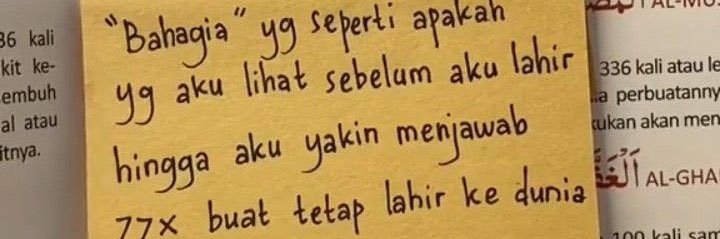 36 kali
kit ke-
embuh
al atau
itnya.
"Bahagia" yg seperti apakah
yg aku lihat sebelum aku lahir
hingga aku yakin menjawab
77x buat tetap lahir ke dunia
336 kali atau le
a perbuatanny
kukan akan men
AL-GHA
100 kali sam